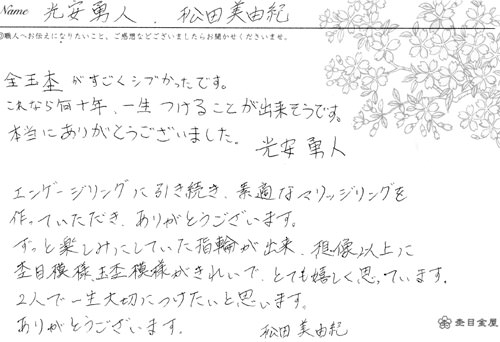 Name 光安勇人. 松田美由紀
◎職人へお伝えになりたいこと、ご感想などございましたらお聞かせくださいませ。
金玉杢がすごくシブかったです。
これなら何十年、一生つけることが出来そうです。
本当にありがとうございました。
光安勇人
エンゲージリングに引き続き、素適なマリッジリングを
作っていただき、ありがとうございます。
ずっと楽しみにしていた指輪が出来、想像以上に
杢目模様、玉杢模様がきれいで、とても嬉しく思っています。
2人で一生大切につけたいと思います。
ありがとうございます。
松田美由紀
杢目金屋